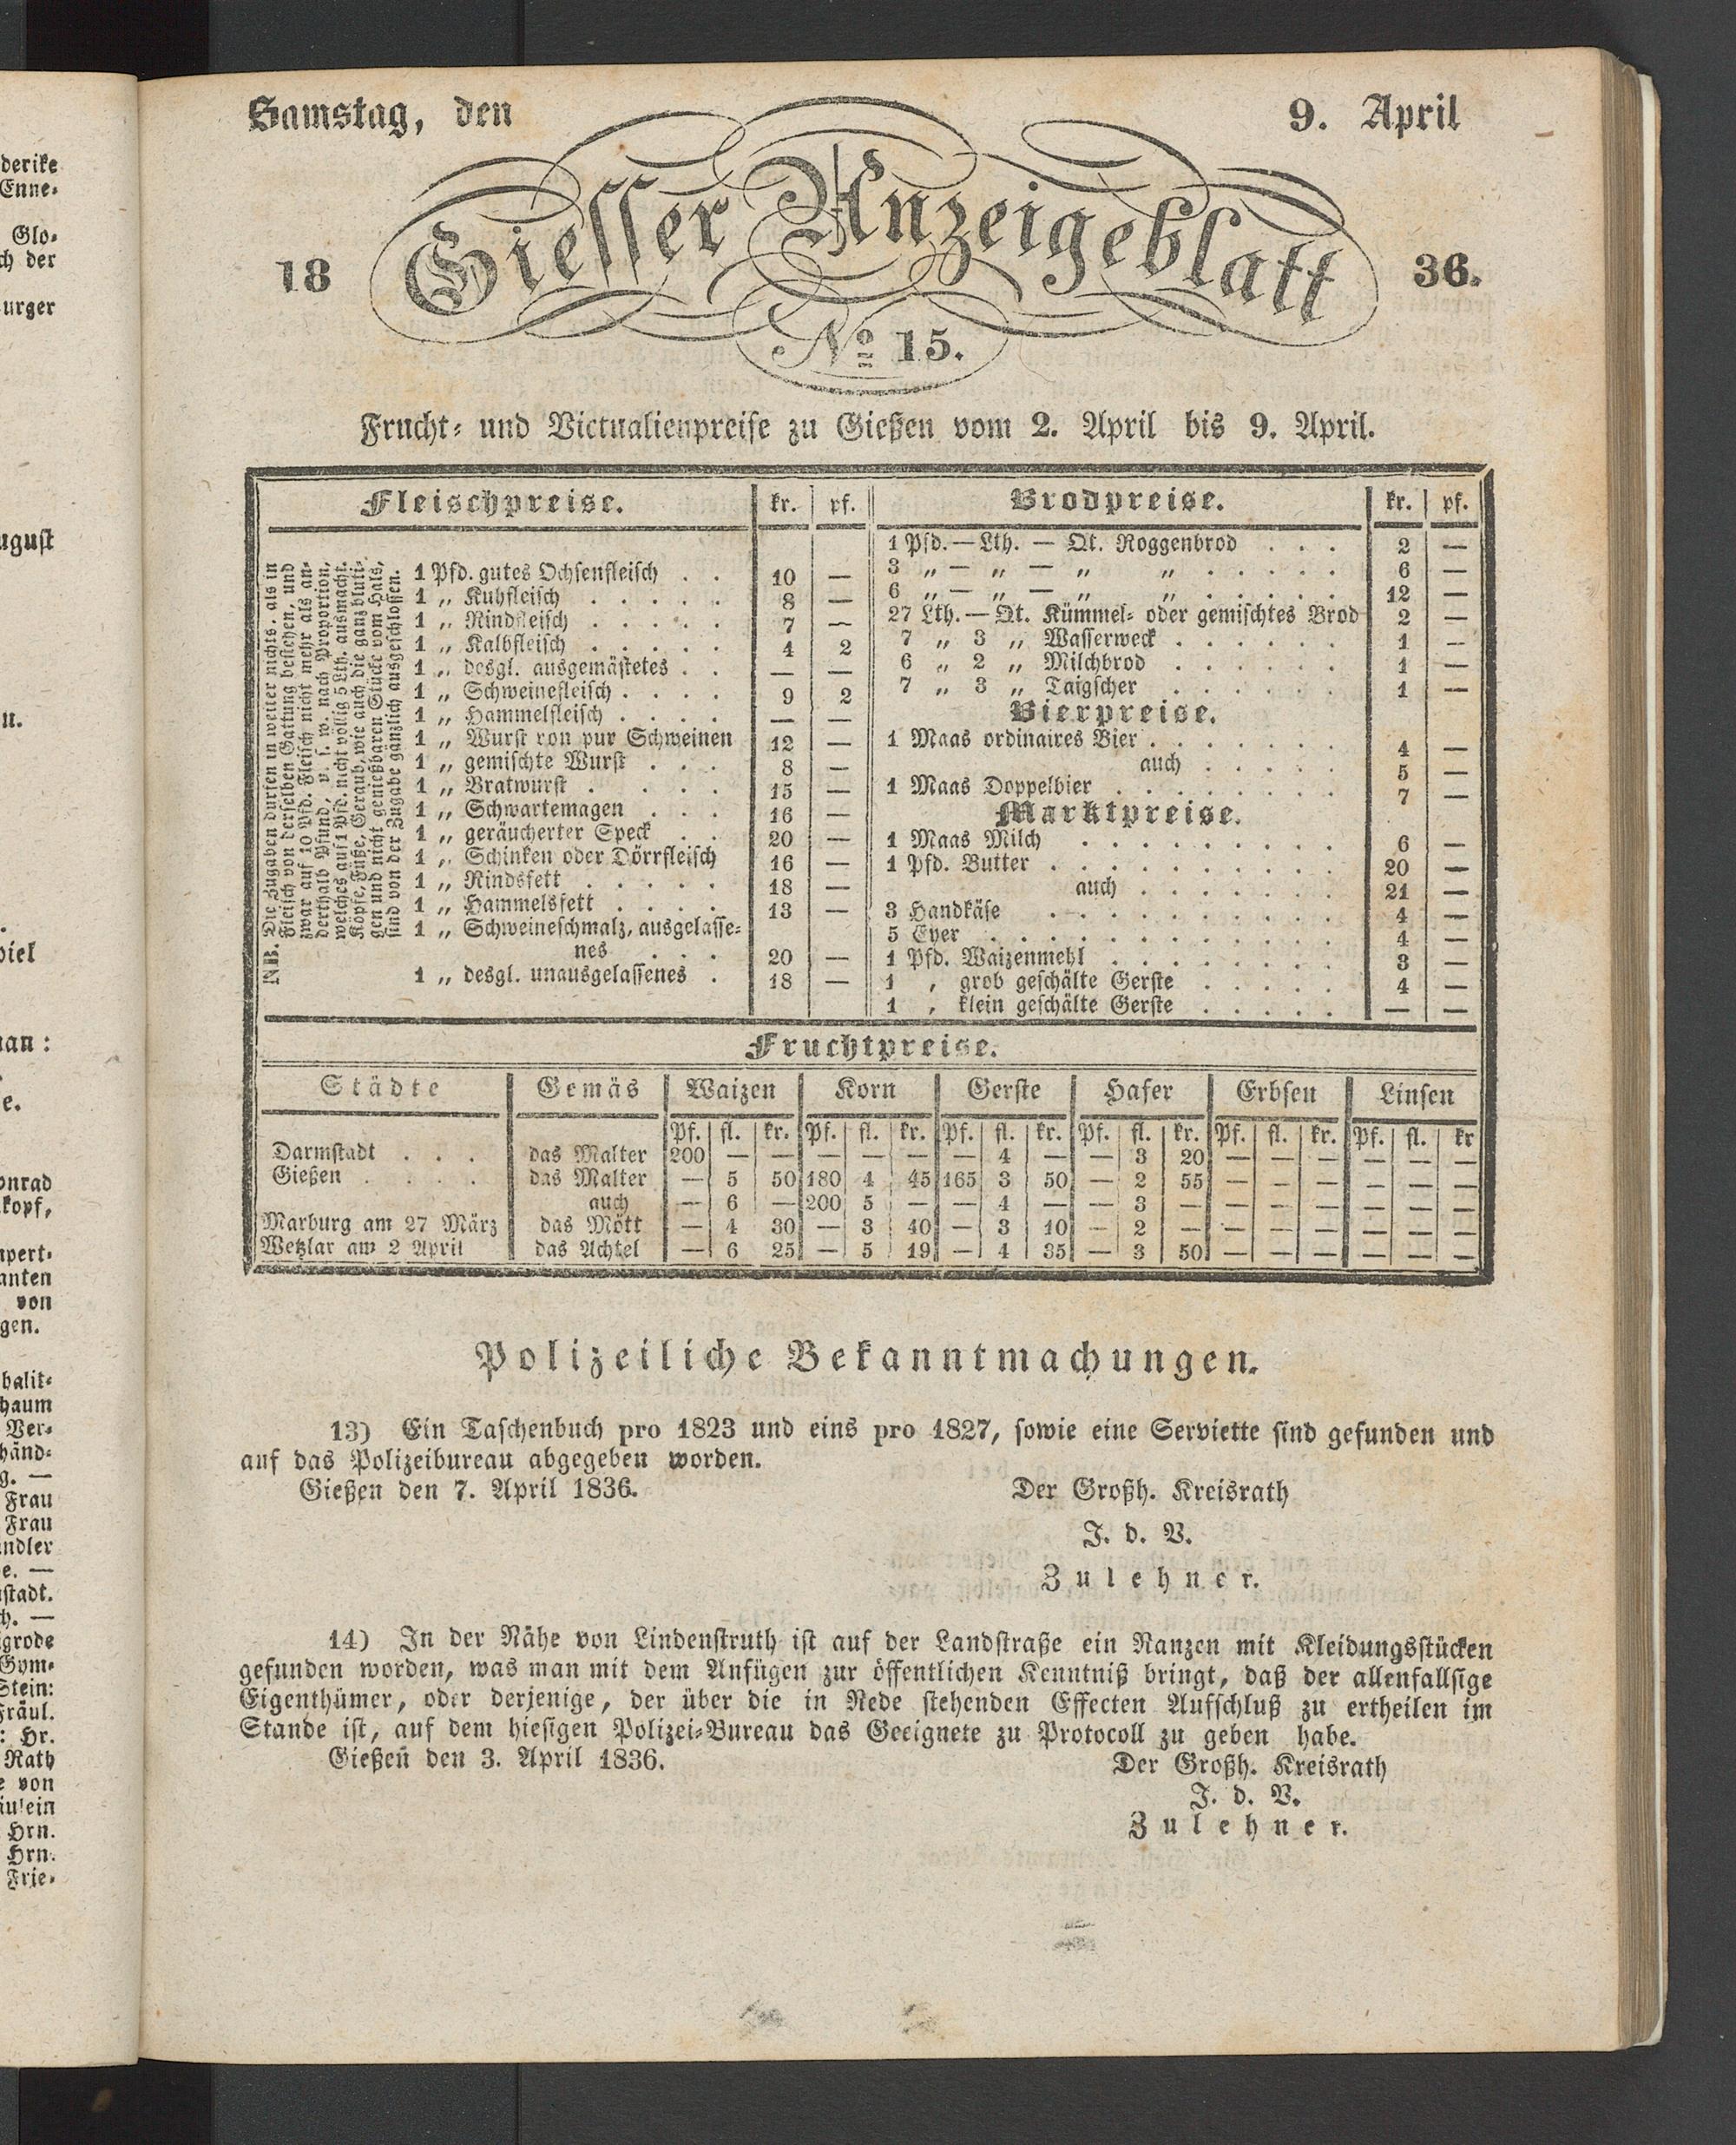 Samstag, den 9. April
18 Giesser Anzeigeblatt 36.
No 15.
Frucht- und Victualienpreise zu Gießen vom 2. April bis 9. April.
Fleischpreise. kr. pf.
NB. Die Zugaben dürfen in weiter nichts, als in
Fleisch von derselben Gattung bestehen, und
zwar auf 10 Pfd. Fleisch nicht mehr als an-
derthalb Pfund, u. s. w. nach Proportion,
welches auf 1 Pfd. nicht völlig 5 Lth. ausmacht.
Köpfe, Füße, Geraub, wie auch die ganz bluti-
gen und nicht genießbaren Stücke vom Hals,
sind von der Zugabe gänzlich ausgeschlossen.
1 Pfd. gutes Ochsenfleisch . . 10 —
1 „ Kuhfleisch . . . . . 8 —
1 „ Rindfleisch . . . . . 7 —
1 „ Kalbfleisch . . . . . 4 2
1 „ desgl. ausgemästetes . . — —
1 „ Schweinefleisch . . . . 9 2
1 „ Hammelfleisch . . . . — —
1 „ Wurst von pur Schweinen 12 —
1 „ gemischte Wurst . . . 8 —
1 „ Bratwurst . . . . . 15 —
1 „ Schwartemagen . . . 16 —
1 „ geräucherter Speck . . 20 —
1 „ Schinken oder Dörrfleisch 16 —
1 „ Rindsfett . . . . . 18 —
1 „ Hammelsfett . . . . 13 —
1 „ Schweineschmalz, ausgelasse-
nes . . . 20 —
1 „ desgl. unausgelassenes . 18 —
Brodpreise. kr. pf.
1 Pfd. — Lth. — Qt. Roggenbrod . . . 2 —
3 „ — „ — „ „ . . . . . 6 —
6 „ — „ — „ „ . . . . . 12 —
27 Lth. — Qt. Kümmel- oder gemischtes Brod 2 —
7 „ 3 „ Wasserweck . . . . . . 1 —
6 „ 2 „ Milchbrod . . . . . . 1 —
7 „ 3 „ Taigscher . . . . . . 1 —
Bierpreise.
1 Maas ordinaires Bier . . . . . . . 4 —
auch . . . . . 5 —
1 Maas Doppelbier . . . . . . . . 7 —
Marktpreise.
1 Maas Milch . . . . . . . . . 6 —
1 Pfd. Butter . . . . . . . . . . 20 —
auch . . . . . . . 21 —
3 Handkäse . . . . . . . . . . 4 —
5 Eyer . . . . . . . . . . . . 4 —
1 Pfd. Waizenmehl . . . . . . . . 3 —
1 , grob geschälte Gerste . . . . . 4 —
1 , klein geschälte Gerste . . . . . — —
Fruchtpreise.
Städte Gemäs Waizen Korn Gerste Hafer Erbsen Linsen
Pf. fl. kr. Pf. fl. kr. Pf. fl. kr. Pf. fl. kr. Pf. fl. kr. Pf. fl. kr
Darmstadt . . . das Malter 200 — — — — — — 4 — — 3 20 — — — — — —
Gießen . . . . das Malter — 5 50 180 4 45 165 3 50 — 2 55 — — — — — —
auch — 6 — 200 5 — — 4 — — 3 — — — — — — —
Marburg am 27 März das Mött — 4 30 — 3 40 — 3 10 — 2 — — — — — — —
Wetzlar am 2 April das Achtel — 6 25 — 5 19 — 4 35 — 3 50 — — — — — —
Polizeiliche Bekanntmachungen.
13) Ein Taschenbuch pro 1823 und eins pro 1827, sowie eine Serviette sind gefunden und
auf das Polizeibureau abgegeben worden.
Gießen den 7. April 1836. Der Großh. Kreisrath
J. d. V.
Zulehner.
14) In der Nähe von Lindenstruth ist auf der Landstraße ein Ranzen mit Kleidungsstücken
gefunden worden, was man mit dem Anfügen zur öffentlichen Kenntniß bringt, daß der allenfallsige
Eigenthümer, oder derjenige, der über die in Rede stehenden Effecten Aufschluß zu ertheilen im
Stande ist, auf dem hiesigen Polizei-Bureau das Geeignete zu Protocoll zu geben habe.
Gießen den 3. April 1836. Der Großh. Kreisrath
J. d. V.
Zulehner.